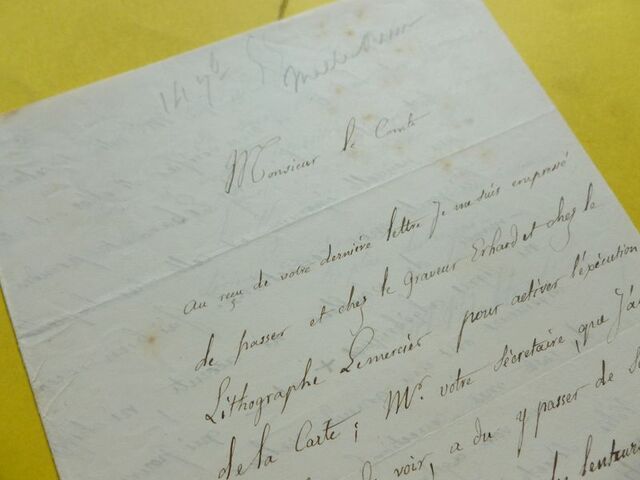 Monsieur le Comte
Au reçu de votre dernière lettre je me suis empressé
de passer et chez le graveur Erhard et chez le
Lithographe Lemercier pour activer l'éxécution
de la Carte; Mr. votre sécretaire, que j'ai
voir, a du y passer de